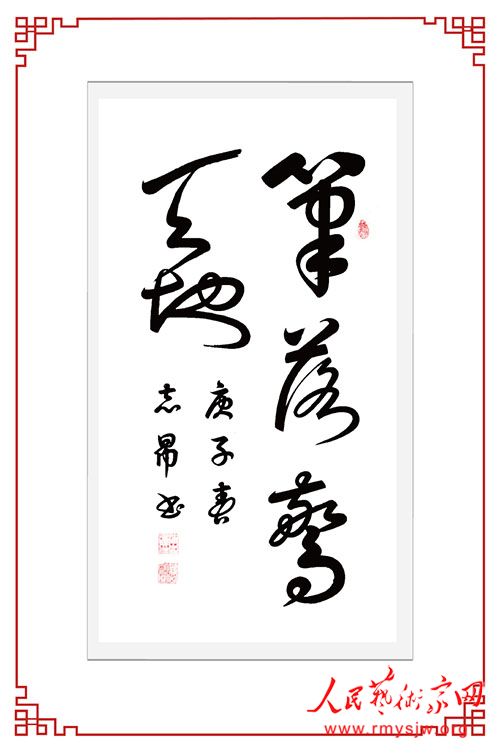 筆落驚
天地
庚子春
志昂书
人民藝術家网
www.rmysjw.org